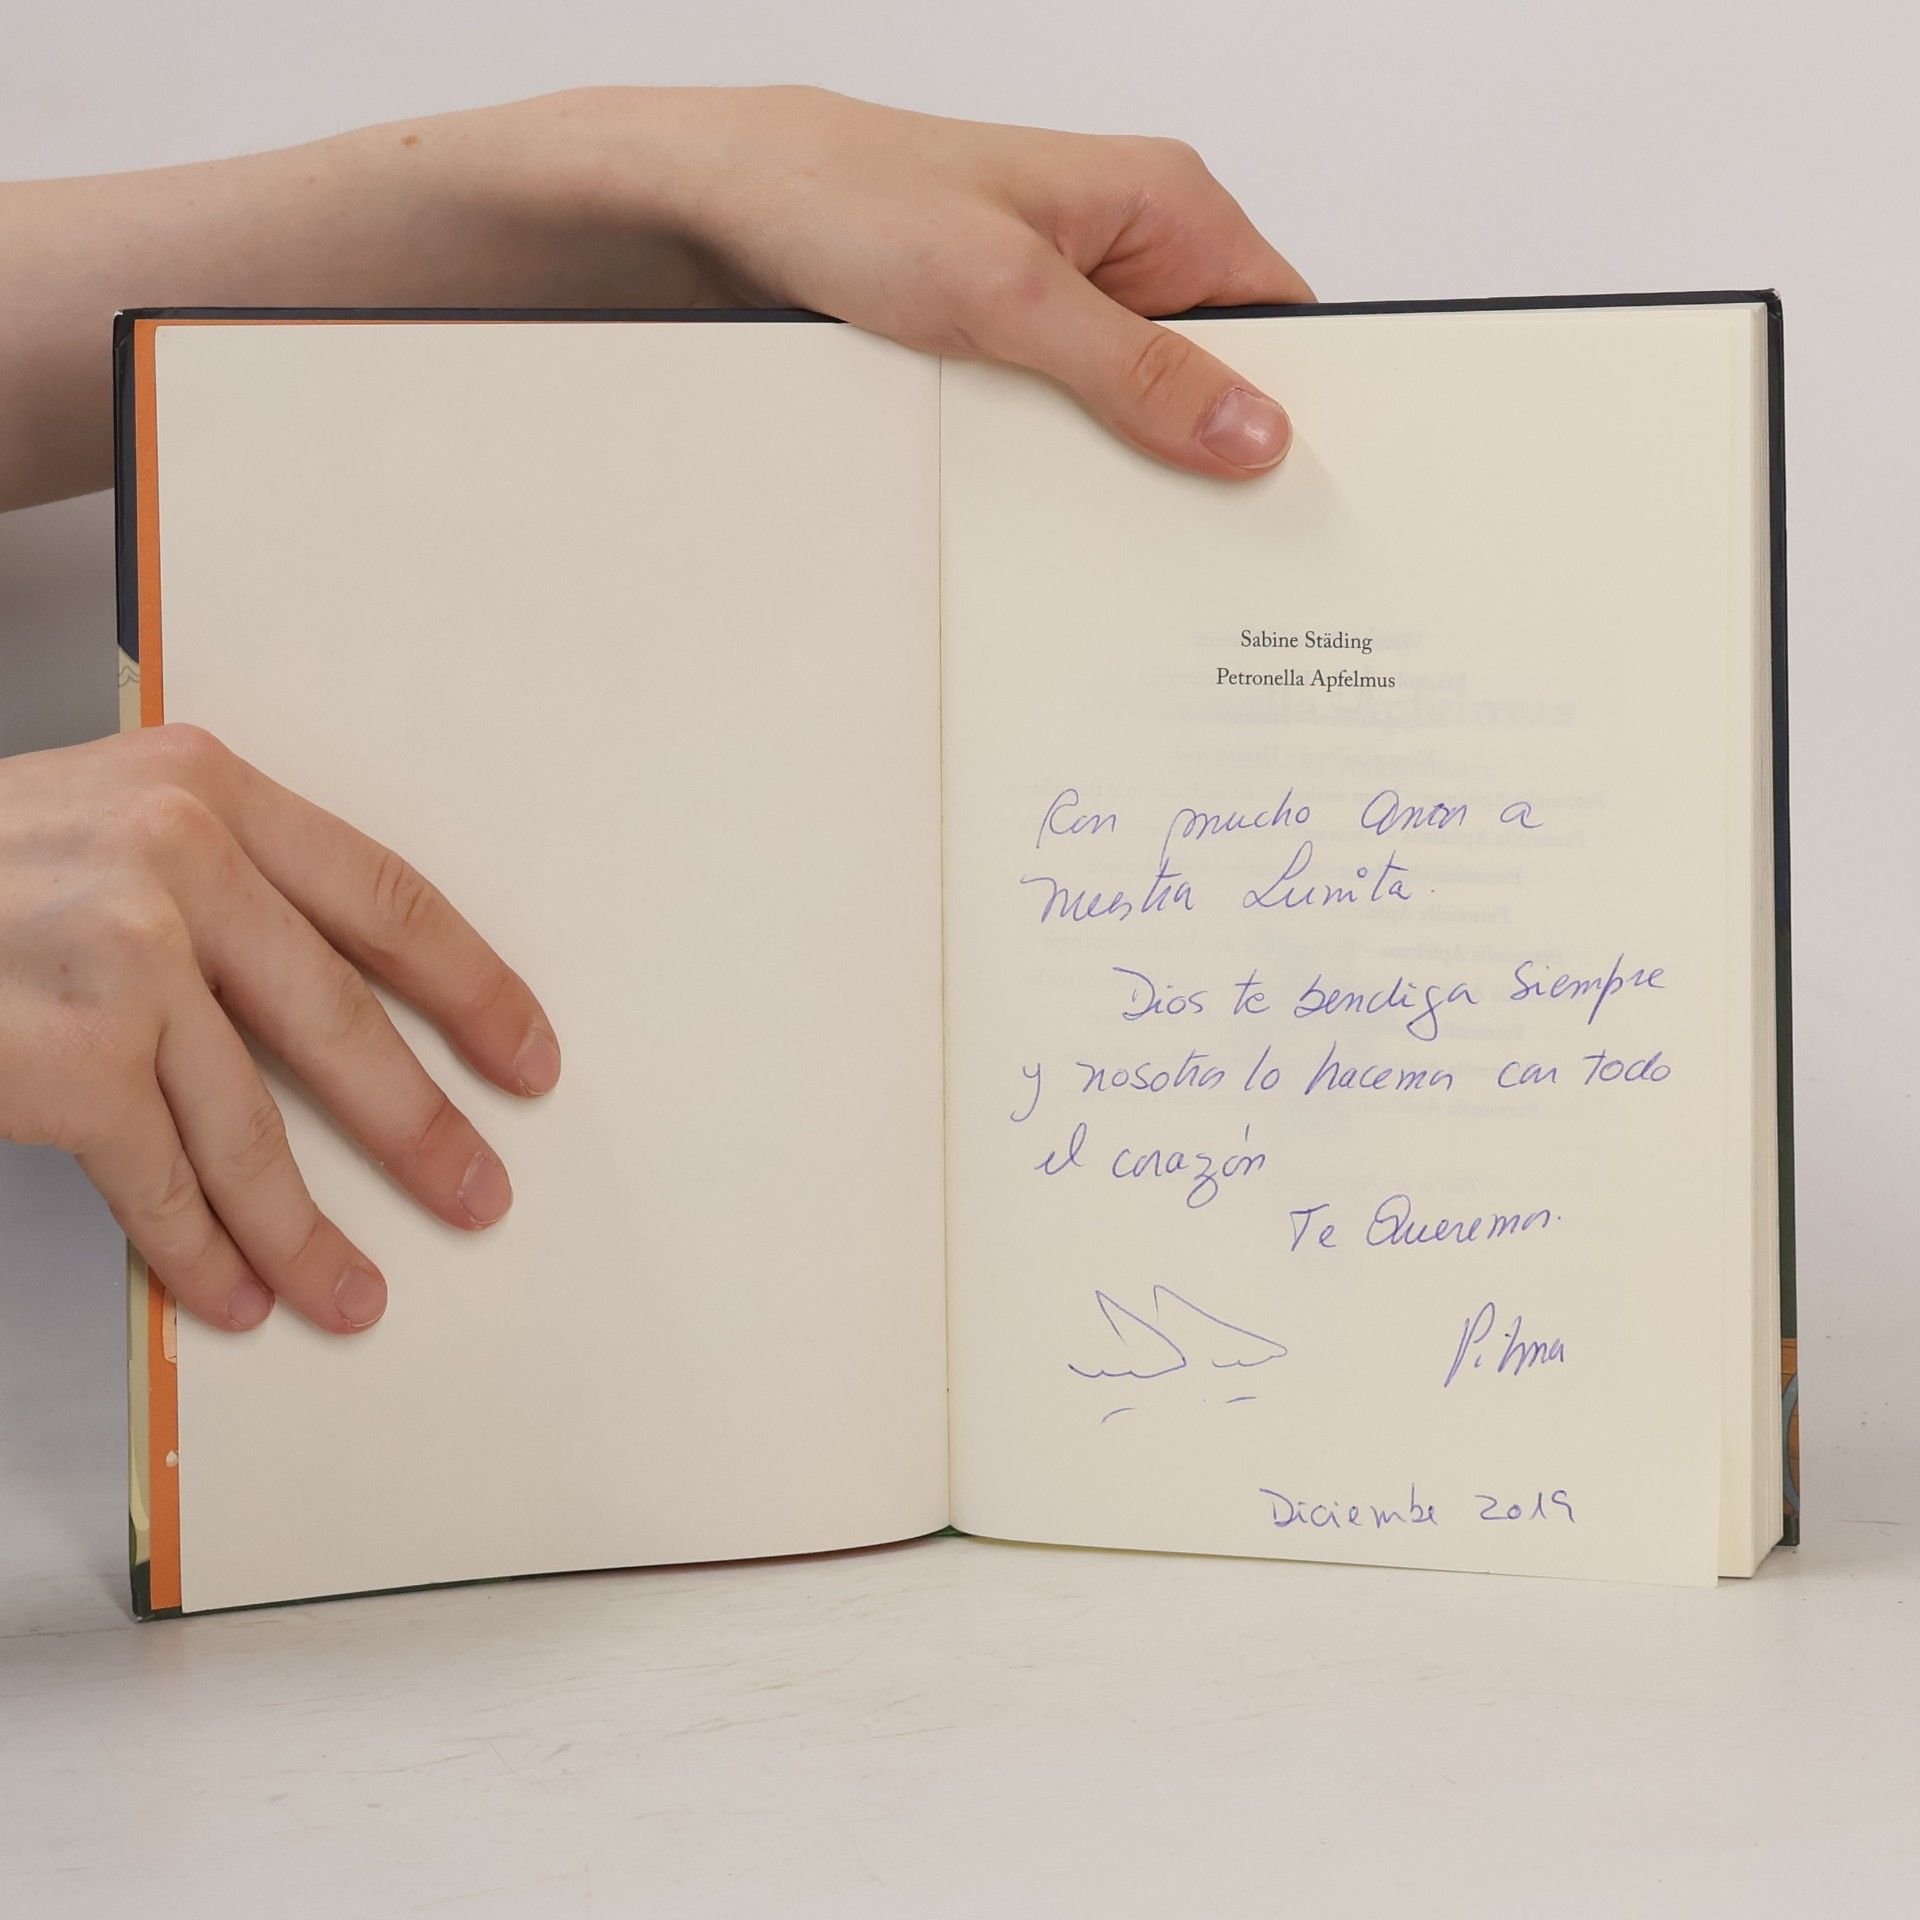 Sabine Städing
Petronella Apfelmus
Con mucho Amor a
nuestra Lunita.
Dios te bendiga siempre
y nosotros lo hacemos con todo
el corazón
Te Queremos.
Diciembre 2019